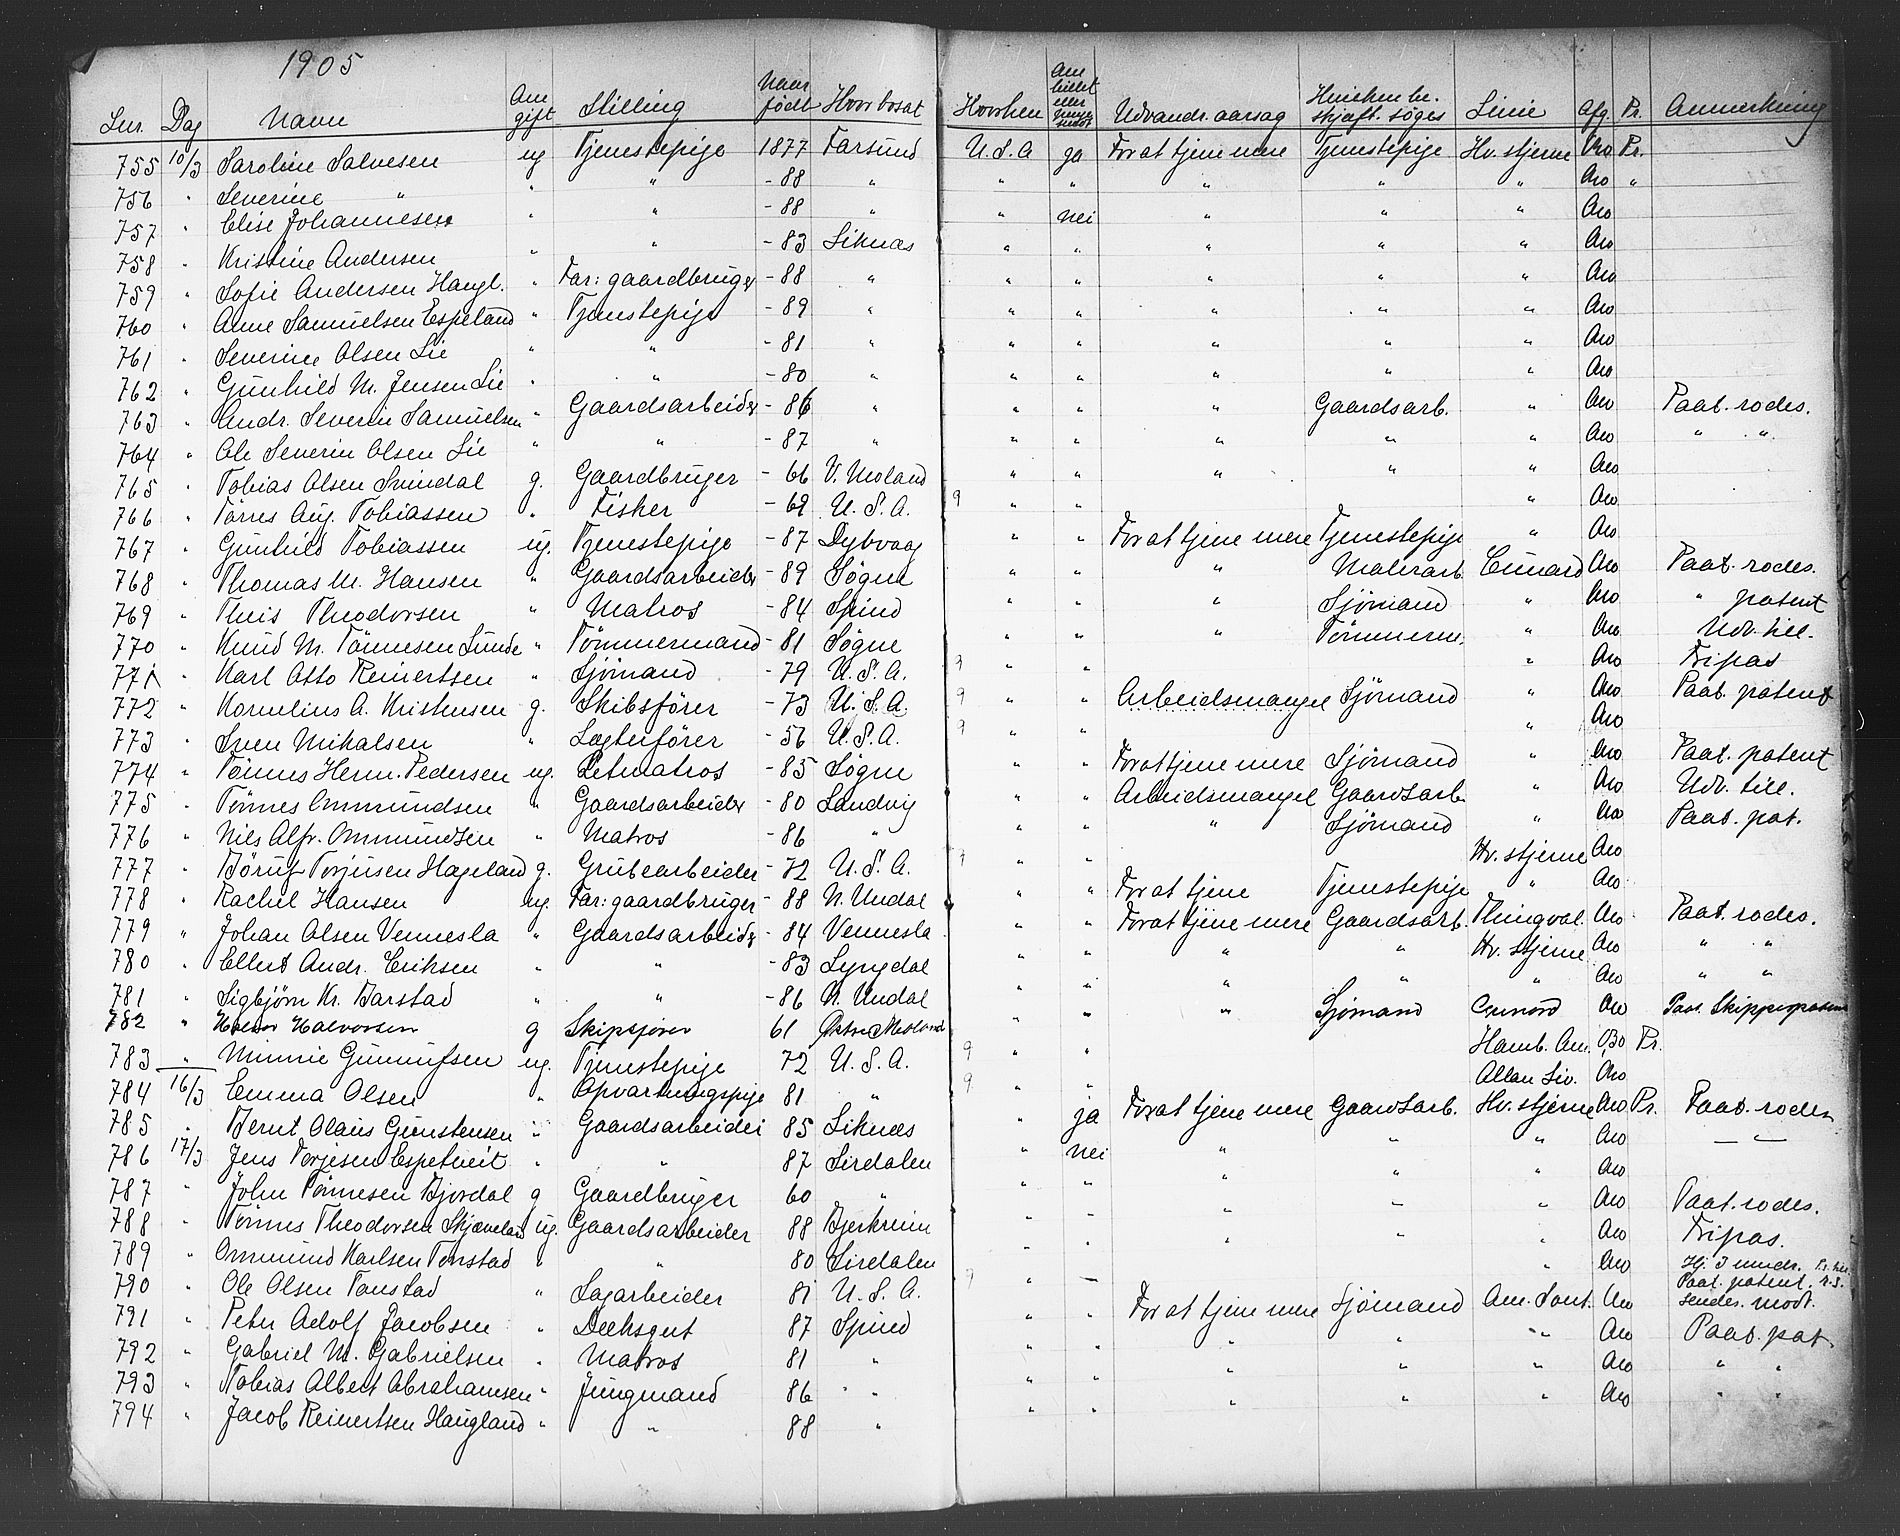 1905
Lnr. Dag Navn Om gift Stilling Naar født Hvor bosat Hvorhen Om billet eller Udvandr. aarsag Hvilken be. skjæft. søges Linie Afg. Pr. Anmerkning
755 10/3 Saroline Salvesen ug Tjenestepige 1877 Farsund U.S.A ja For at tjene mere Tjenestepige Hv. stjerne Aro Pr.
756 " Severine " " " - 88 " " " " " " Aro "
757 " Elise Johannesen " " - 88 " " nei " " " Aro
758 " Kristine Andersen " " - 83 Liknæs " " " " " Aro
759 " Sofie Andersen Haugl. " Far: gaardbruger - 88 " " " " " " Aro
760 " Anne Samuelsen Espeland " Tjenestepige - 89 " " " " " " Aro
761 " Severine Olsen Lie " " - 81 " " " " " " Aro
762 " Gunhild M. Jensen Lie " " - 80 " " " " " " Aro
763 " Andr. Severin Samuelsen " Gaardsarbeider - 86 " " " " Gaardsarb. " Aro Paat. rodes.
764 " Ole Severin Olsen Lie " " - 87 " " " " " " Aro " "
765 " Tobias Olsen Svindal g. Gaardbruger - 66 V. Moland " " " " " Aro
766 " Tørres Aug. Tobiassen " Fisker - 69 U.S.A. 9 " " " Aro
767 " Gunhild Tobiassen ug. Tjenestepige - 87 Dybvaag " " For at tjene mere Tjenestepige " Aro
768 " Thomas M. Hansen " Gaardsarbeider - 89 Søgne " " " Malerarb. Cunard Aro Paat. rodes.
769 " Theis Theodorsen " Matros - 84 Spind " " " Sjømand " Aro " patent
770 " Knud M. Tønnesen Lunde " Tømmermand - 81 Søgne " " " Tømmerm. " Aro Udv. till.
771 Karl Otto Reinertsen " Sjømand - 79 U.S.A. 9 " " " Aro Fripas
772 " Kornelius A. Kristensen g. Skibsfører - 73 U.S.A. 9 " " Arbeidsmangel Sjømand " Aro Paat. patent
773 " Sven Mikalsen " Lægterfører - 56 U.S.A. 9 " " " Aro
774 " Tønnes Herm. Pedersen ug. Letmatros - 85 Søgne " " For at tjene mere Sjømand " Aro Paat. patent
775 " Tønnes Ommundsen " Gaardsarbeider - 80 Landvig " " Arbeidsmangel Gaardsarb. " Aro Udv. till.
776 " Nils Alfr. Ommundsen " Matros - 86 " " " " Sjømand " Aro Paat. pat.
777 " Børuf Torjusen Hageland g. Grubearbeider - 72 U.S.A. 9 " " Hv. stjerne Aro
778 " Rachel Hansen ug. Far: gaardbruger - 88 N. Undal " " For at tjene Tjenestepige " Aro
779 " Johan Olsen Vennesla " Gaardsarbeider - 84 Vennesla " " For at tjene mere Gaardsarb. Thingval. Aro Paat. rodes.
780 " Ellert Andr. Eriksen " " - 83 Lyngdal " " " " Hv. stjerne Aro " "
781 " Sigbjørn Kr. Barstad " " - 86 N. Undal " " " " " Aro " "
782 " Halvor Halvorsen g Skipsfører 61 Østre Moland " " " Sjømand Cunard Aro Paat. Skipperpatent
783 " Minnie Gunnufsen ug. Tjenestepige 72 U.S.A. 9 " " Hamb. Am. Pr.
784 16/3 Emma Olsen " Opvartningspige 81 " 9 " " Allan Liv. Aro
785 " Bernt Olaus Gunstensen " Gaardsarbeider 85 Liknæs " ja For at tjene mere Gaardsarb. Hv. stjerne Aro Pr. Paat. rodes
786 17/3 Jens Torjesen Espetveit " " 87 Sirdalen " nei " " " Aro — " —
787 " John Tønnesen Bjordal g Gaardbruger 60 " " " " " " Aro
788 " Tønnes Theodorsen Skjæveland ug. Gaardsarbeider 88 Bjerkreim " " " " " Aro Paat. rodes.
789 " Ommund Karlsen Tonstad " " 80 Sirdalen " " " " " Aro Fripas.
790 " Ole Olsen Tonstad " Sagarbeider 81 U.S.A. 9 " — " Aro
791 " Peter Adolf Jacobsen " Dæksgut 87 Spind " " For at tjene mere Sjømand Am. Sont. Aro Paat. patent. sendes. modt.
792 " Gabriel M. Gabrielsen " Matros 81 " " " " " " Aro Paat. pat.
793 " Tobias Albert Abrahamsen " Jungmand 86 " " " " " " Aro " "
794 " Jacob Reinertsen Haugland " " 88 " " " " " " Aro " "